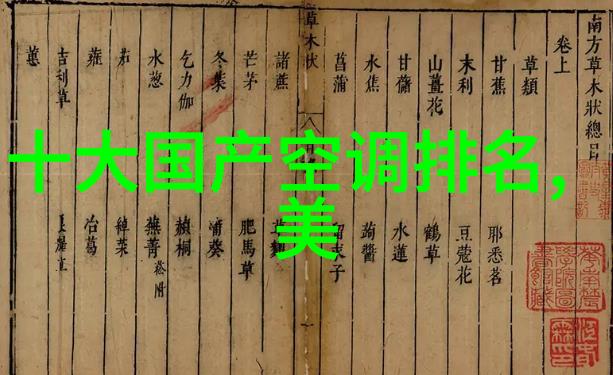 十大国产空调排名,
美
南方草木狀總目
卷上
草類
甘蕉 耶悉茗
末利 豆蔻花
山薑花 鶴草
甘藷 水蓮
水蕉 蒟醬
菖蒲 子
草木狀
諸蔗
芒茅 肥馬草
冬葉 蒲葵
乞力伽 赬桐
水葱 蕪菁 菘附
茄 綽菜
蕹 冶葛
吉利草
蕙